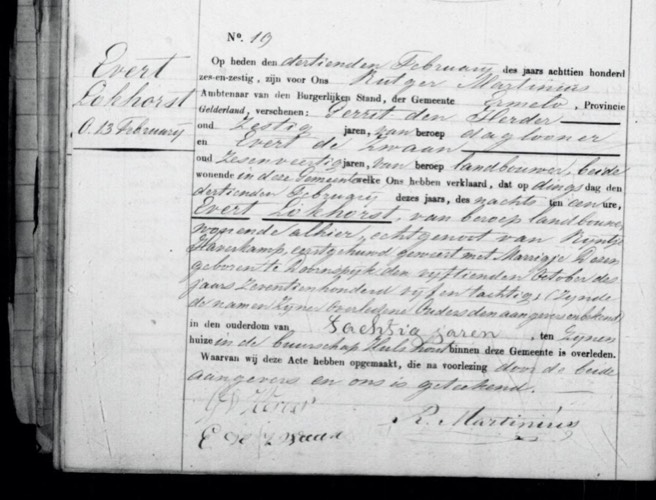 No. 19
Evert
Lokhorst
O. 13 Februarij
Op heden den dertienden Februarij des jaars achttien honderd
zes-en-zestig, zijn voor Ons Rutger Martinius
Ambtenaar van den Burgerlijken Stand, der Gemeente Ermelo, Provincie
Gelderland, verschenen: Gerrit den Herder
oud Zestig jaren, van beroep daglooner
en Evert de Zwaan
oud Zesenveertig jaren, van beroep landbouwer, beide
wonende in deze Gemeente welke Ons hebben verklaard, dat op dings dag den
dertienden Februarij dezes jaars, des nachts ten een ure,
Evert Lokhorst, van beroep landbouwer,
wonende alhier, echtgenoot van Rijntje
Hanekamp, eerst gehuwd geweest met Marrigje
geboren te Doornspijk den vijftienden October des
jaars Zeventienhonderd vijf en tachtig, (Zijnde
de namen Zijner Overledene Ouders den aangevers onbekend
in den ouderdom van Tachtig jaren, ten Zijnen
huize in de buurschap Hulshorst binnen deze Gemeente is overleden.
Waarvan wij deze Acte hebben opgemaakt, die na voorlezing door de beide
aangevers en ons is geteekend.
E de Zwaan
R. Martinius